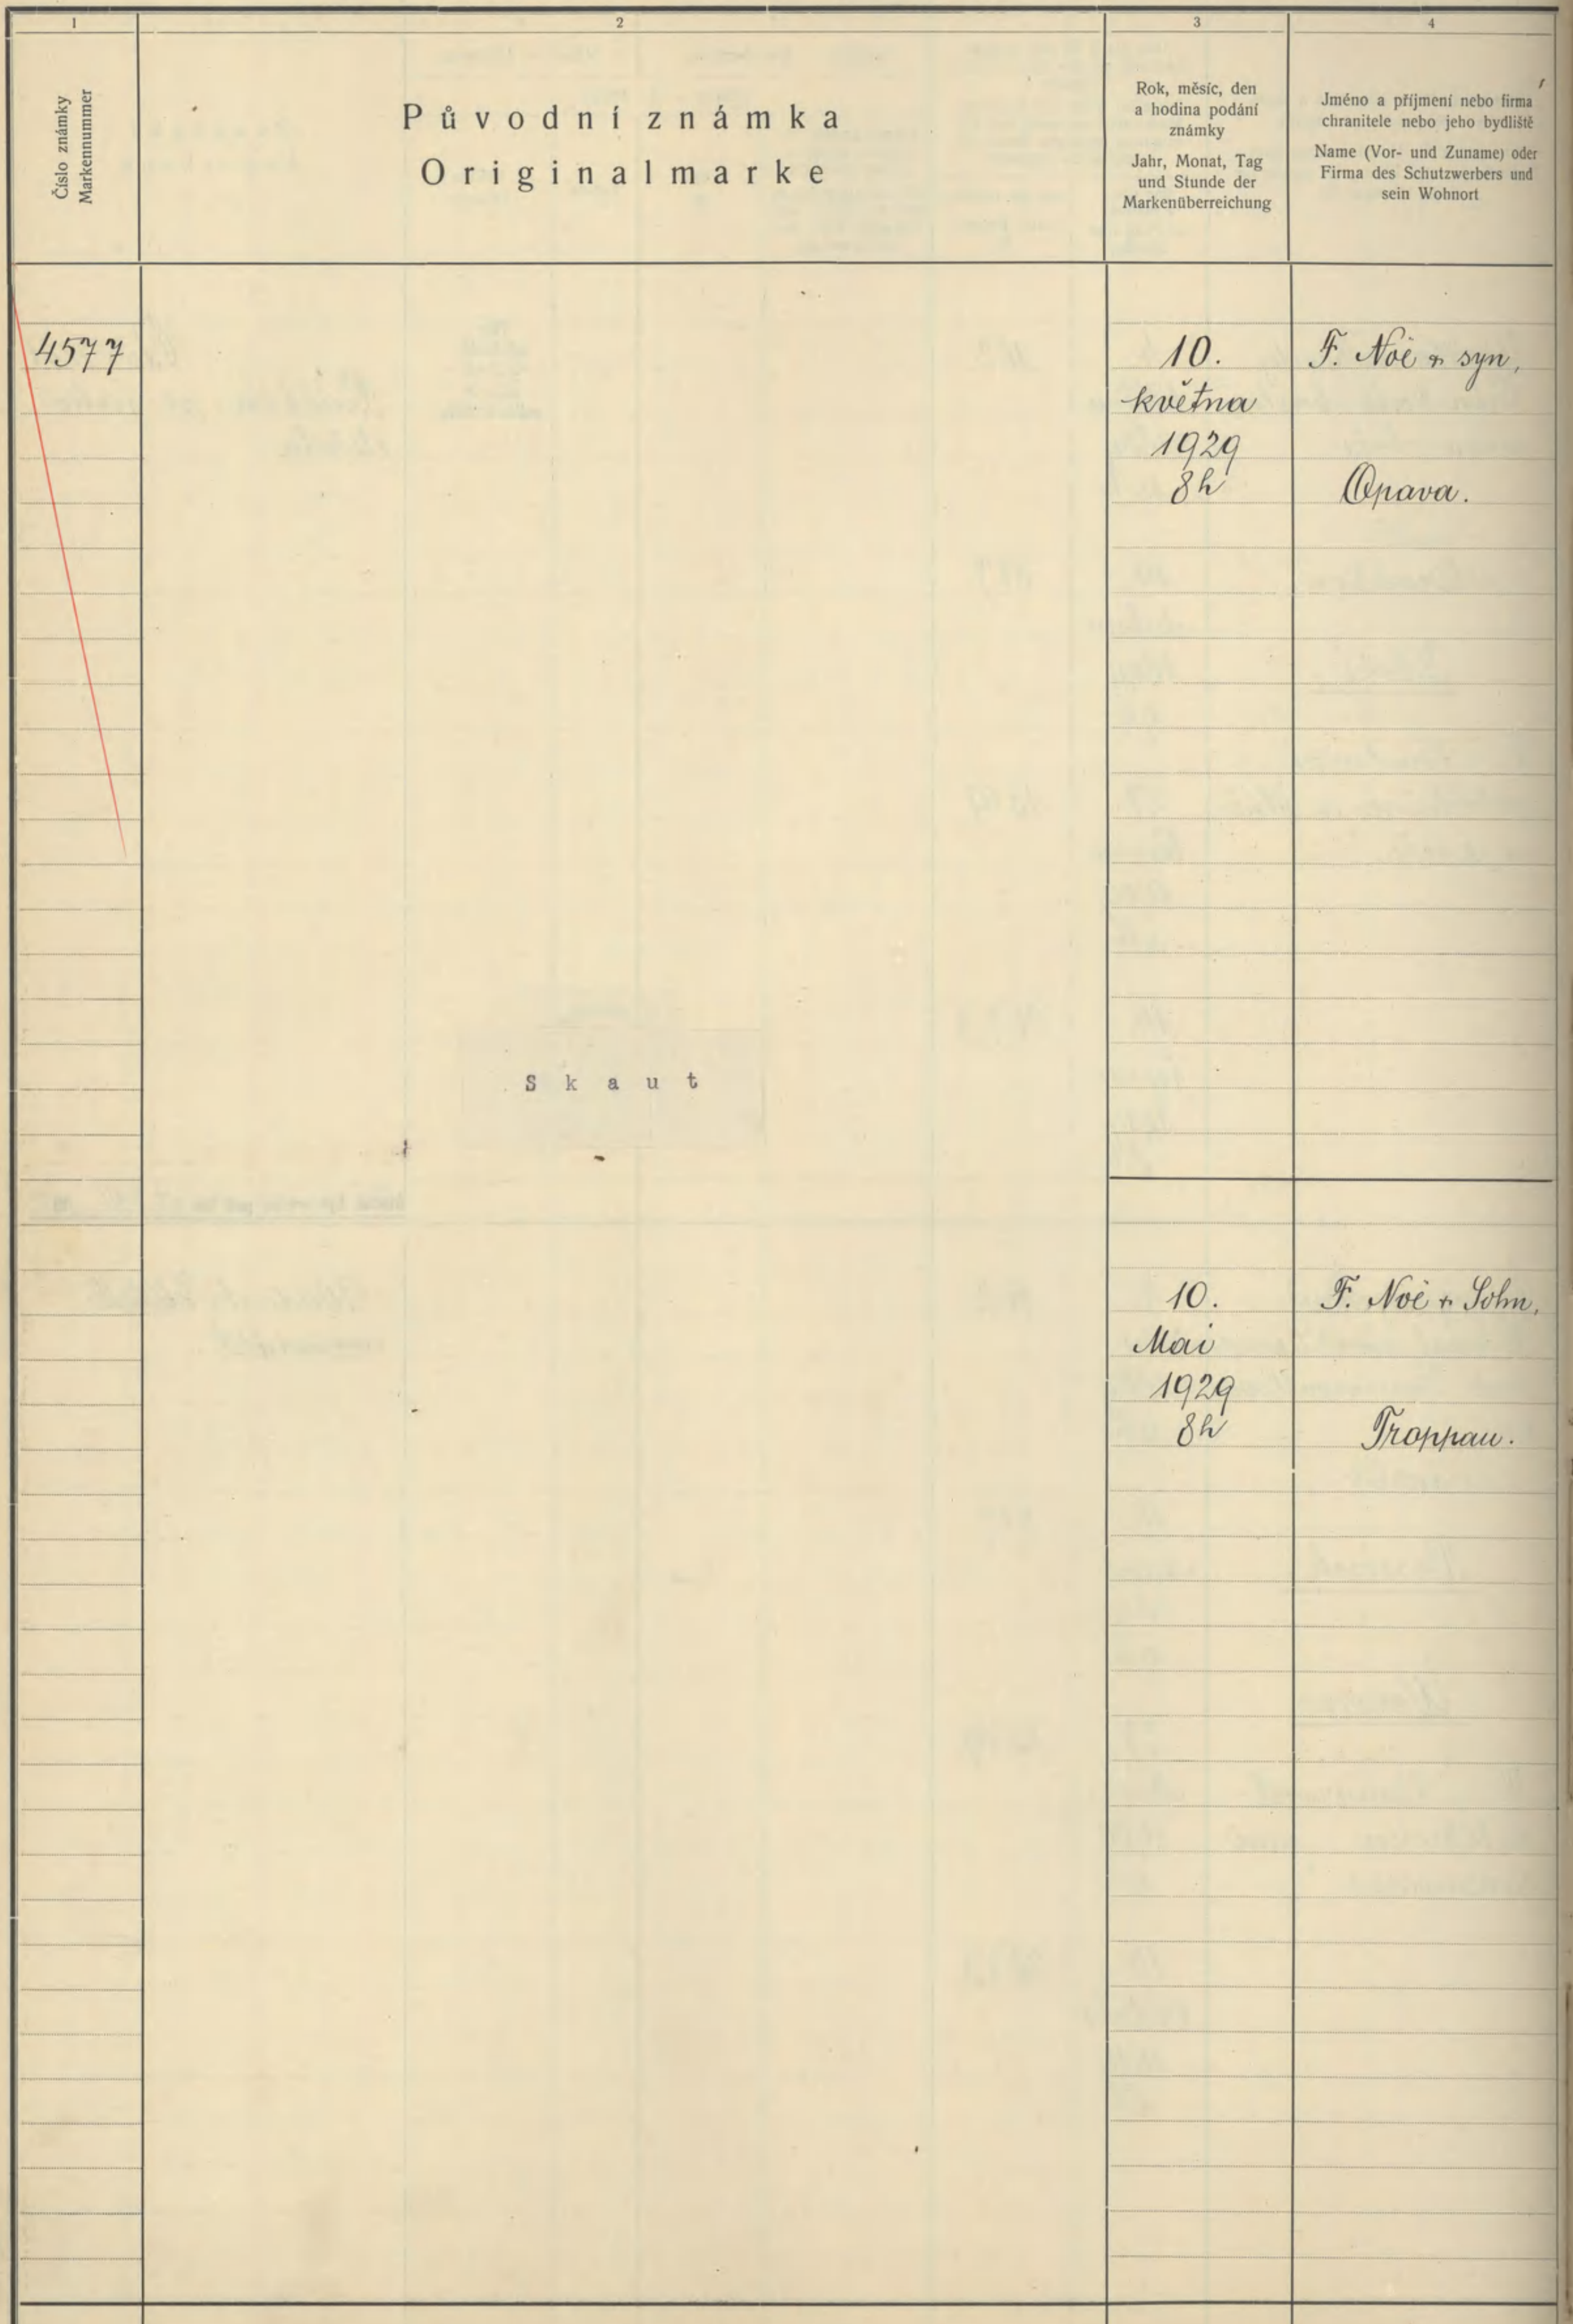 1
2
3
4
Číslo známky
Markennummer
Původní známka
Originalmarke
Rok, měsíc, den
a hodina podání
známky
Jahr, Monat, Tag
und Stunde der
Markenüberreichung
Jméno a příjmení nebo firma
chranitele nebo jeho bydliště
Name (Vor- und Zuname) oder
Firma des Schutzwerbers und
sein Wohnort
4577
10.
května
1929
8h
F. Noë + syn,
Opava.
Skaut
10.
Mai
1929
8h
F. Noë + Sohn,
Troppau.